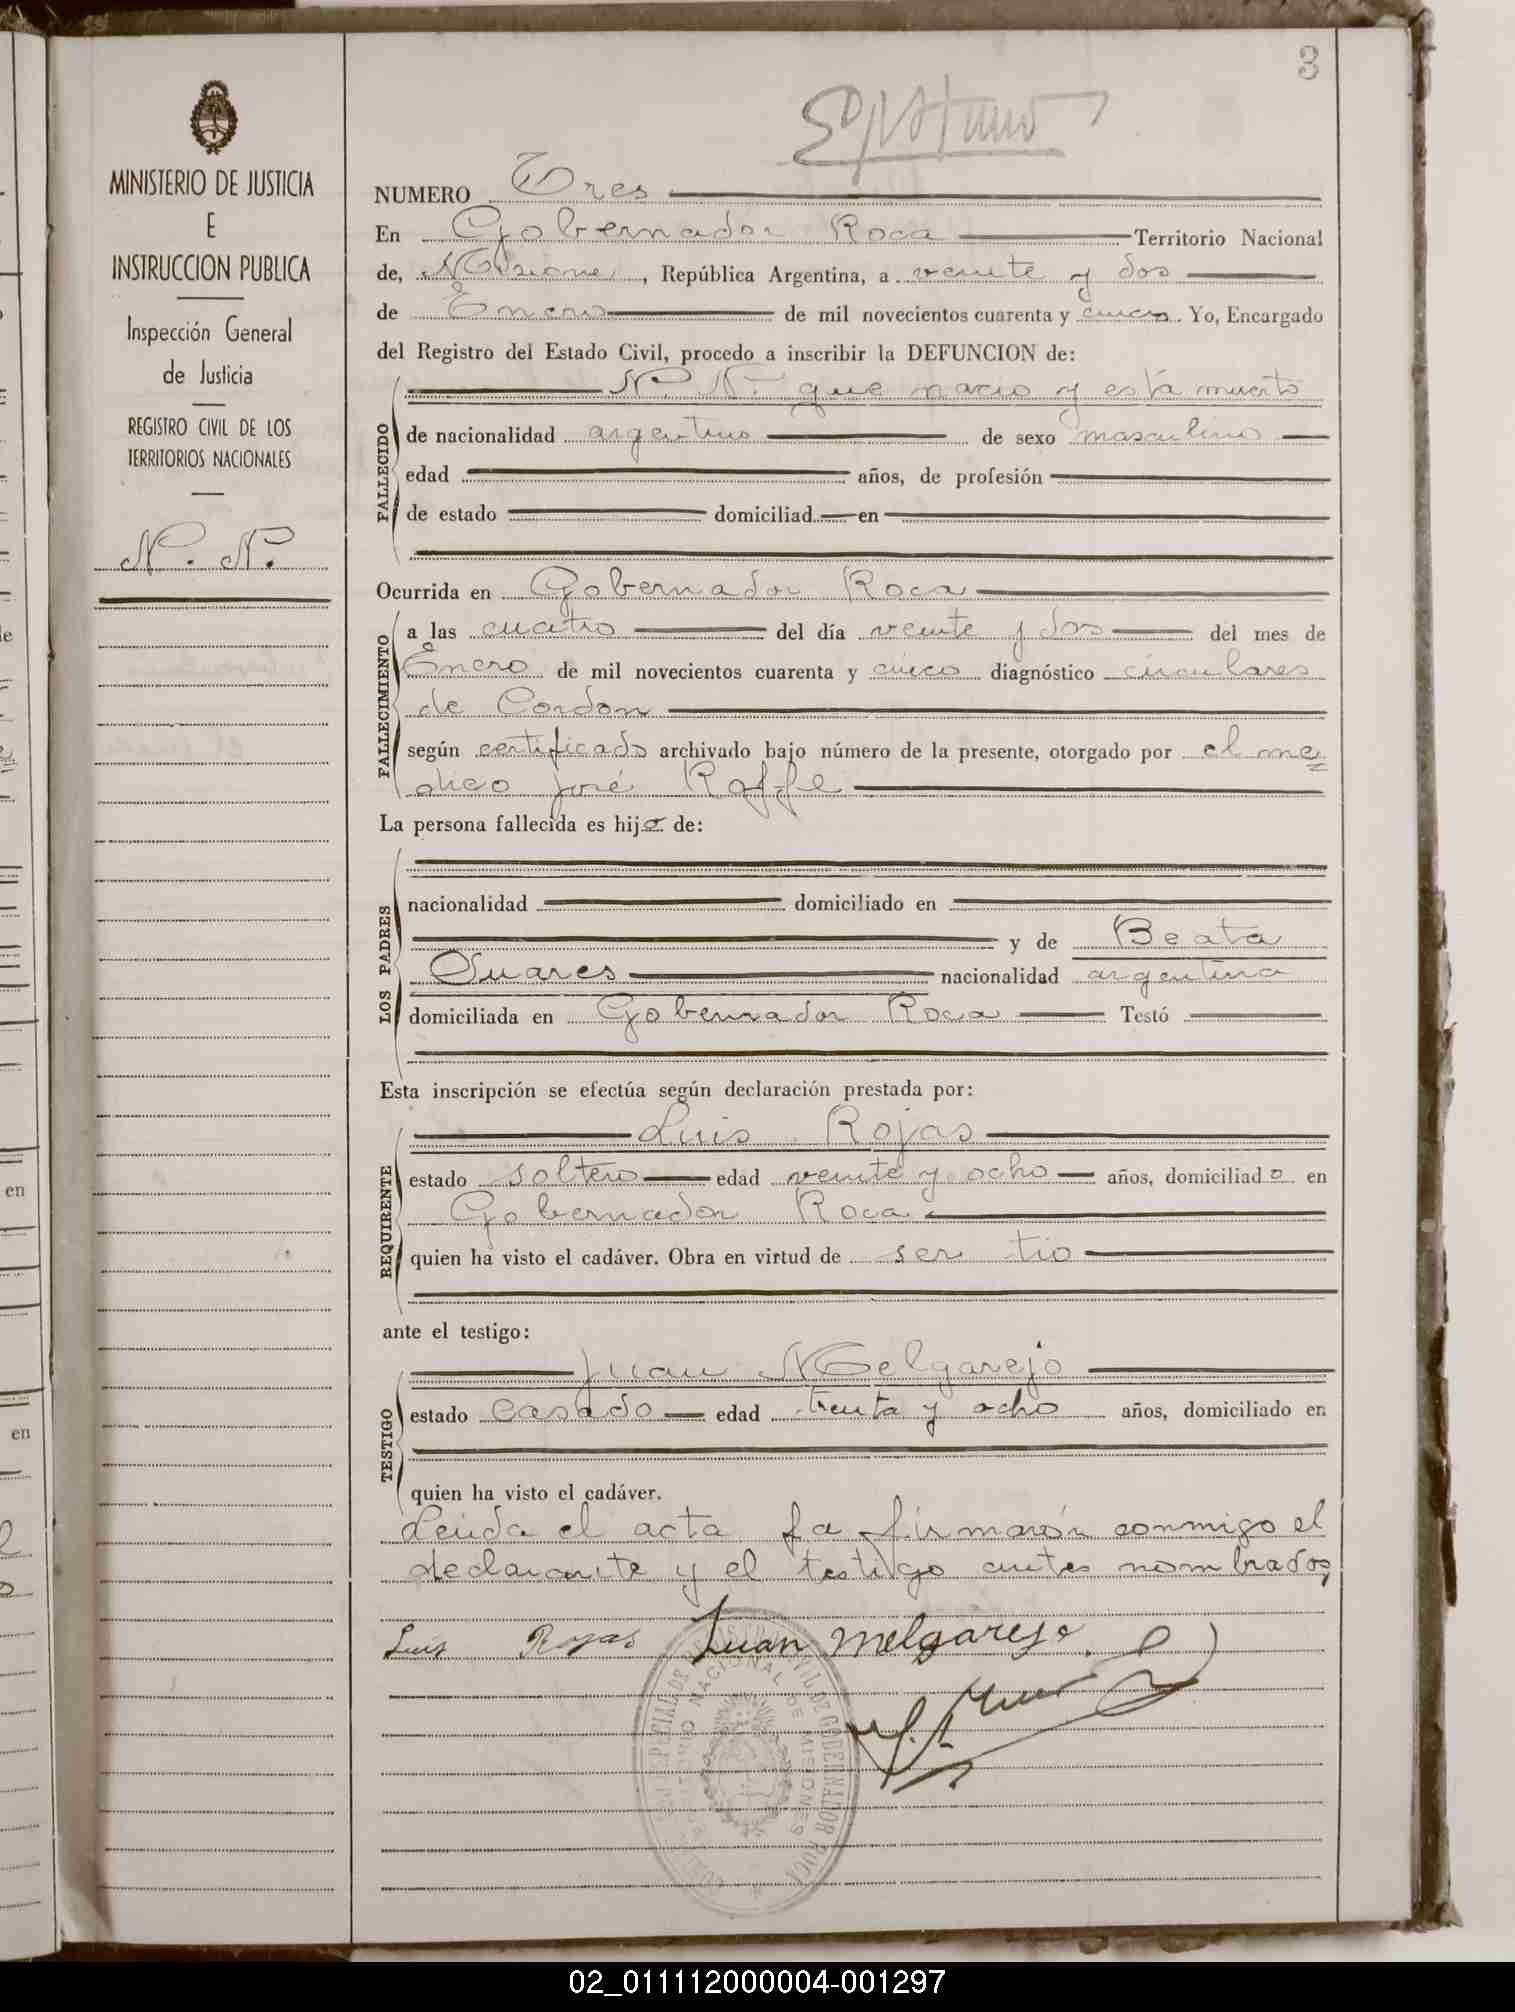 3
MINISTERIO DE JUSTICIA
E
INSTRUCCION PUBLICA
Inspección General
de Justicia
REGISTRO CIVIL DE LOS
TERRITORIOS NACIONALES
N. N.
NUMERO Tres
En Gobernador Roca Territorio Nacional
de, Misiones, República Argentina, a veinte y dos
de Enero de mil novecientos cuarenta y cinco. Yo, Encargado
del Registro del Estado Civil, procedo a inscribir la DEFUNCION de:
FALLECIDO
N. N. que nacio y está muerto
de nacionalidad argentino de sexo masculino
edad años, de profesión
de estado domiciliad en
Ocurrida en Gobernador Roca
FALLECIMIENTO
a las cuatro del día veinte y dos del mes de
Enero de mil novecientos cuarenta y cinco diagnóstico circulares
de Cordon
según certificado archivado bajo número de la presente, otorgado por el me
dico José Roffe
La persona fallecida es hijo de:
LOS PADRES
nacionalidad domiciliado en
y de Beata
Suares nacionalidad argentina
domiciliada en Gobernador Roca Testó
Esta inscripción se efectúa según declaración prestada por:
REQUIRENTE
Luis Rojas
estado soltero edad veinte y ocho años, domiciliado en
Gobernador Roca
quien ha visto el cadáver. Obra en virtud de ser tio
ante el testigo:
TESTIGO
Juan Melgarejo
estado casado edad trenta y ocho años, domiciliado en
quien ha visto el cadáver.
Leida el acta la firmarón conmigo el
declarante y el testigo antes nombrados,
Luis Rojas Juan Melgarejo
en
en
02_011112000004-001297